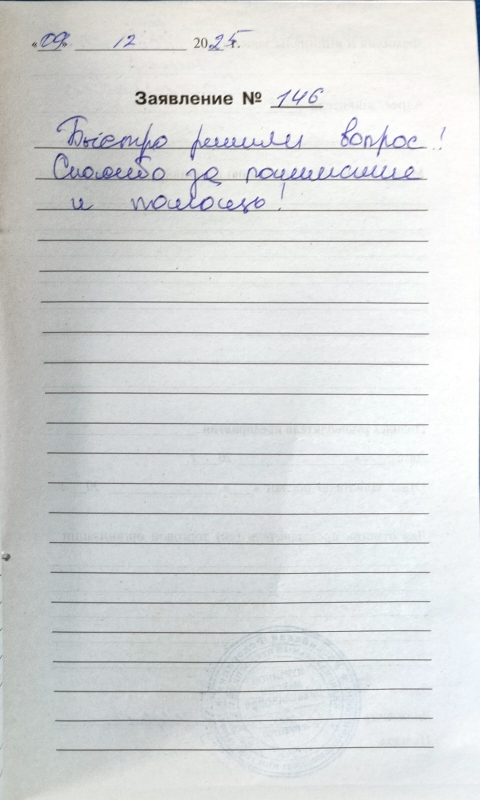 «09» 12 2025г.
Заявление № 146
Быстро решили вопрос!
Спасибо за понимание
и помощь!